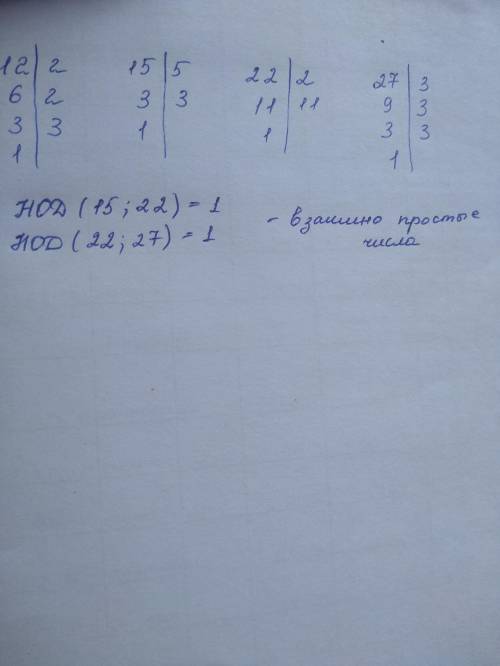 12 | 2 15 | 5 22 | 2 27 | 3
6 | 2 3 | 3 11 | 11 9 | 3
3 | 3 1 | 1 | 3 | 3
1 | 1 |
НОД (15; 22) = 1
НОД (22; 27) = 1
- взаимно простые
числа